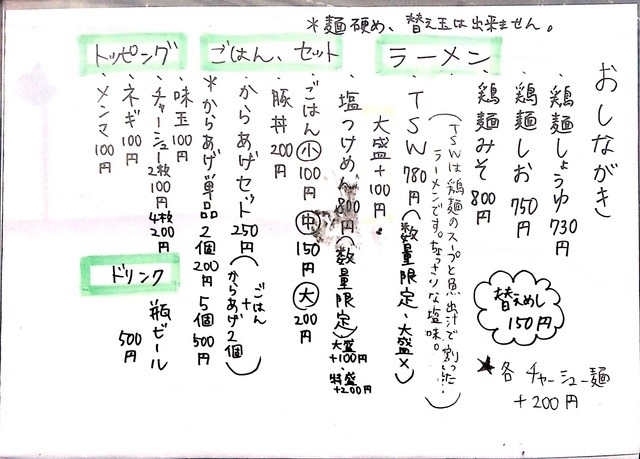 おしながき
＊麺硬め、替え玉は出来ません。
ラーメン
・鶏麺しょうゆ 730円
・鶏麺しお 750円
・鶏麺みそ 800円
替えめし 150円
★各チャーシュー麺 +200円
(TSWは鶏麺のスープと魚出汁で割った…
ラーメンです。あっさりな塩味。)
・TSW 780円(数量限定、大盛×)
大盛+100円
・塩つけめん 800円(数量限定)
大盛+100円、特盛+200円
ごはん、セット
・ごはん 小 100円 中 150円 大 200円
・豚丼 200円
・からあげセット 250円(ごはん+からあげ2個)
＊からあげ単品 2個 200円 5個 500円
トッピング
・味玉 100円
・チャーシュー 2枚 100円 4枚 200円
・ネギ 100円
・メンマ 100円
ドリンク
瓶ビール 500円